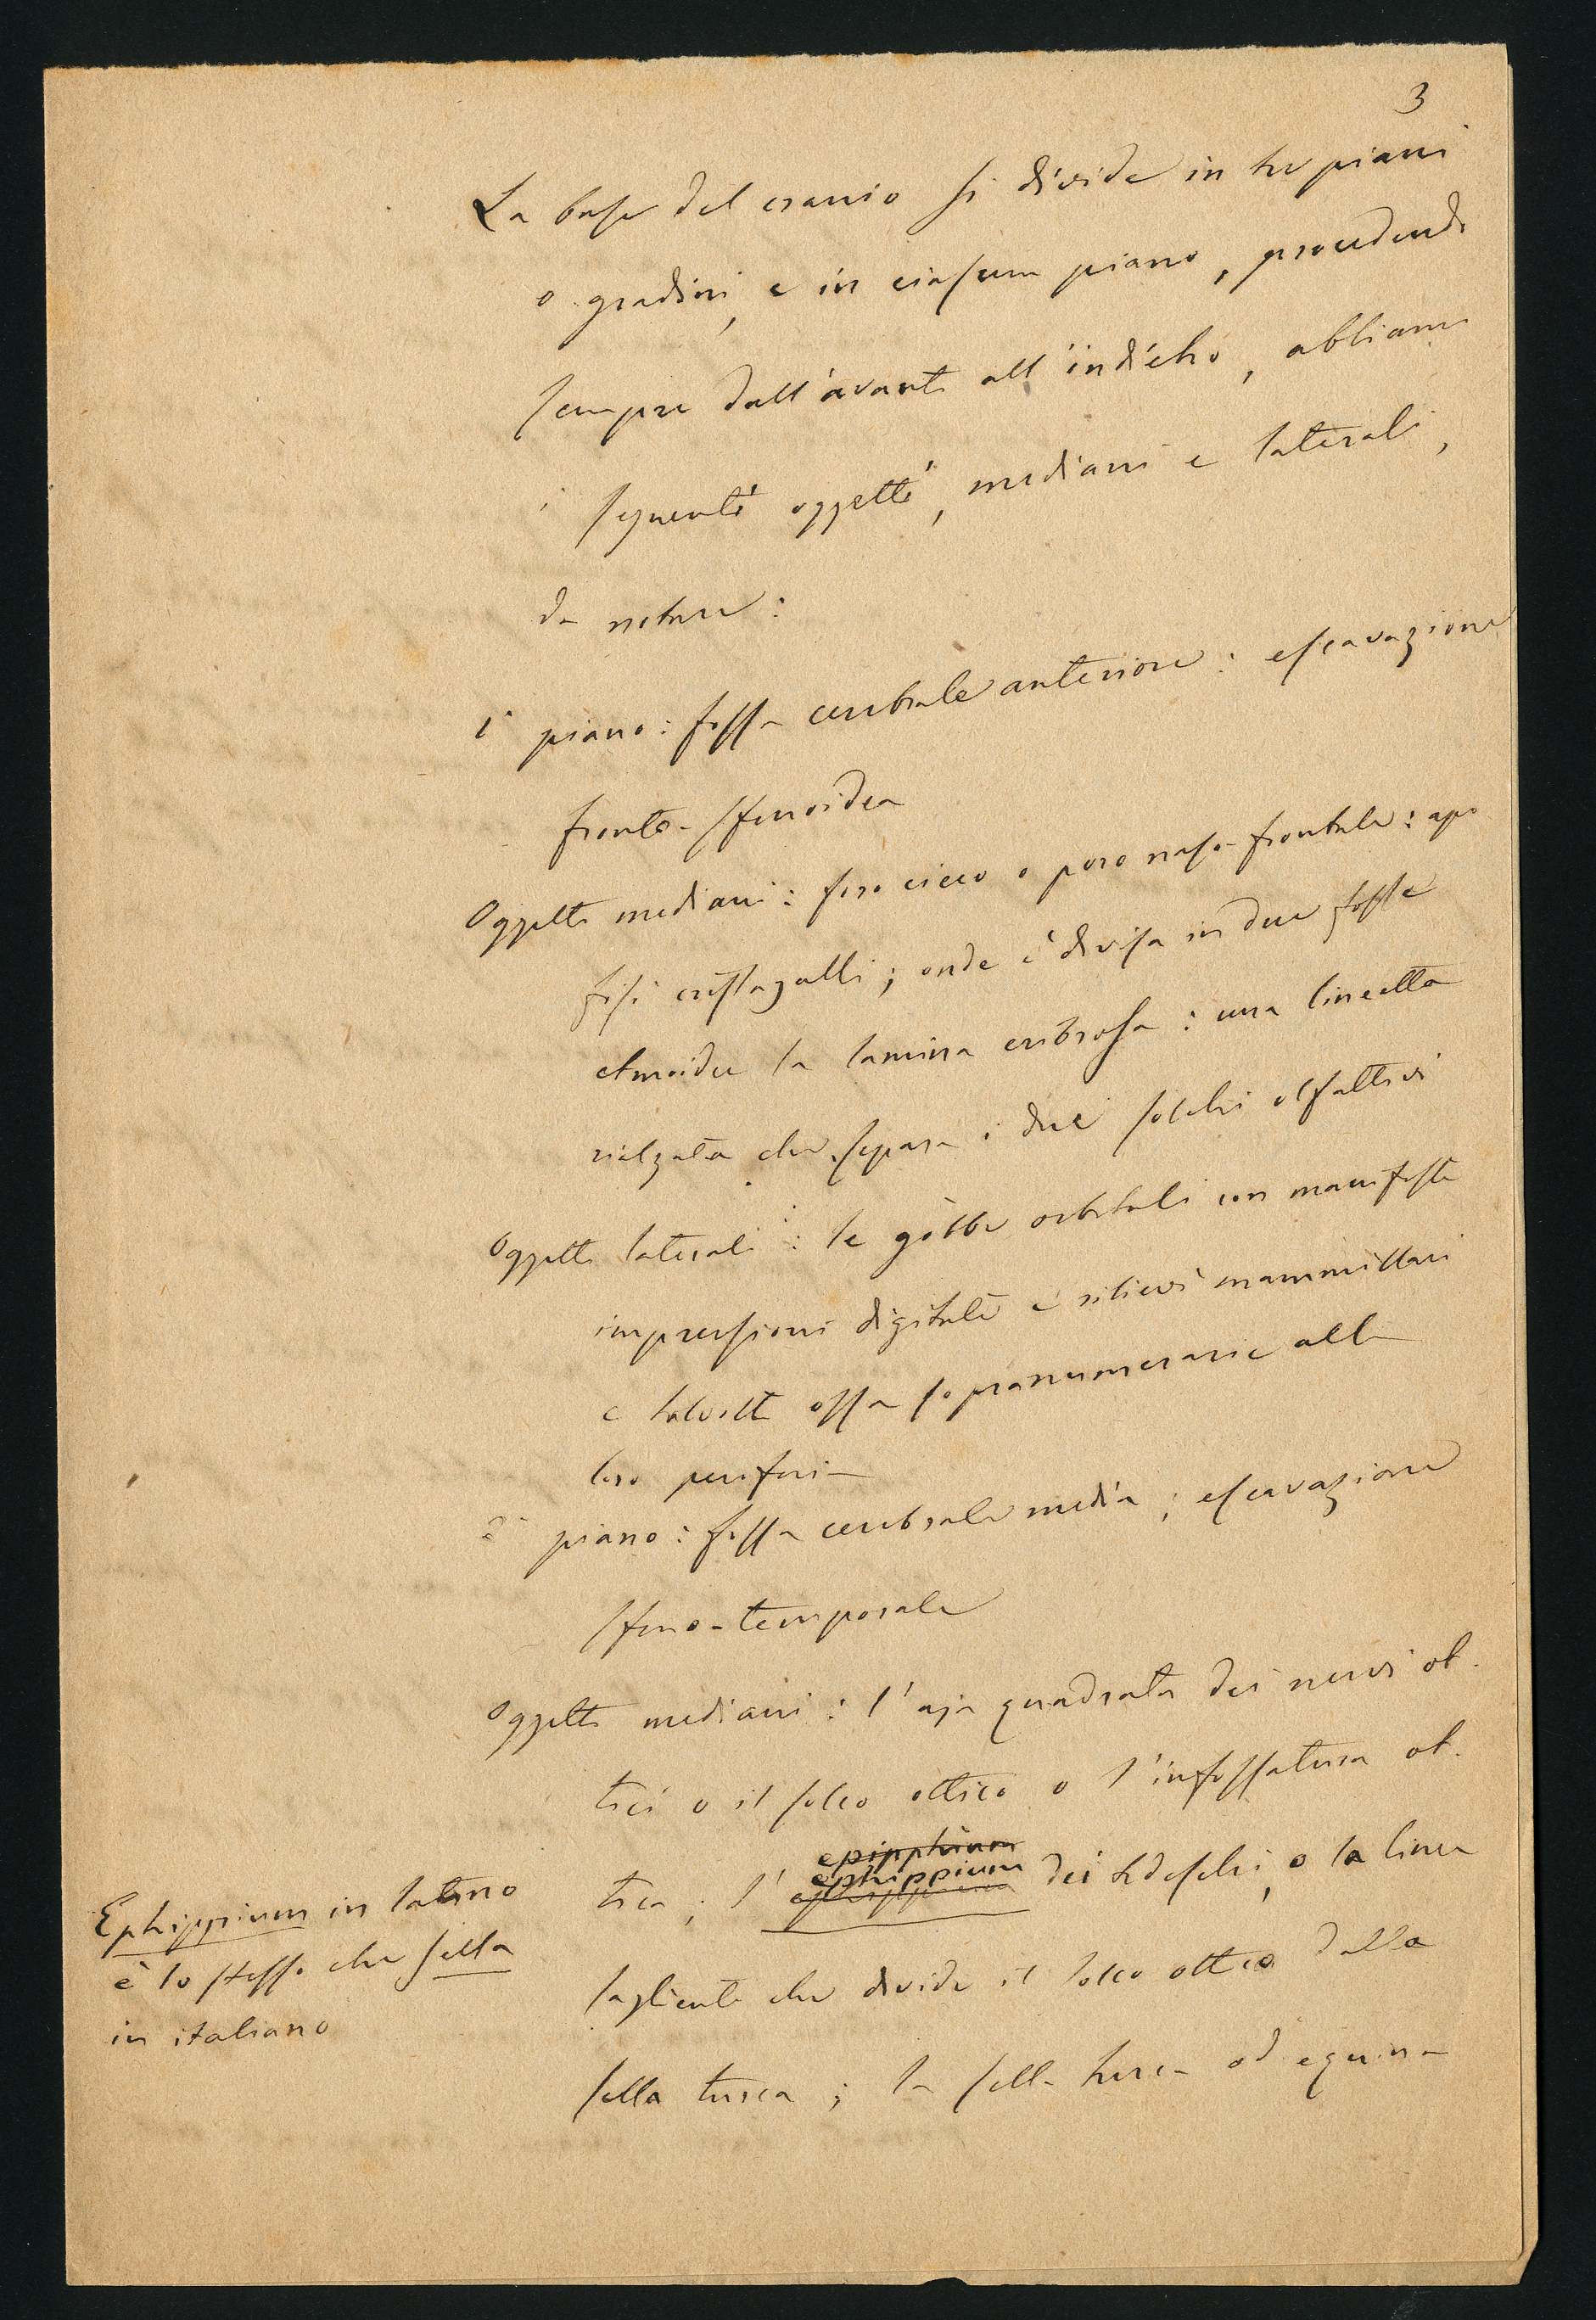 3
La base del cranio si divide in tre piani
o gradini, e in ciascun piano, procedendo
sempre dall'avanti all'indietro, abbiamo
i seguenti oggetti, mediani e laterali,
da notare:
1° piano: fossa cerebrale anteriore: escavazione
fronto-sfenoidea
Oggetti mediani: foro cieco o poro naso-frontale: apo
fisi cristagalli; onde è divisa in due fosse
etmoidee la lamina cribrosa: una lineetta
rialzata che separa i due solchi olfattivi
Oggetti laterali: le gobbe orbitali con manifeste
impressioni digitali e rilievi mammillari
e talvolta ossa sopranumerarie alla
loro periferia
2° piano: fossa cerebrale media; escavazione
sfeno-temporale
Oggetti mediani: l'aja quadrata dei nervi ot-
tici o il solco ottico o l'infossatura ot-
epipphium
ephippium
tica; l' dei tedeschi, o la linea
sagliente che divide il solco ottico dalla
sella turca; la sella turca od equina
Ephippium in latino
è lo stesso che sella
in italiano